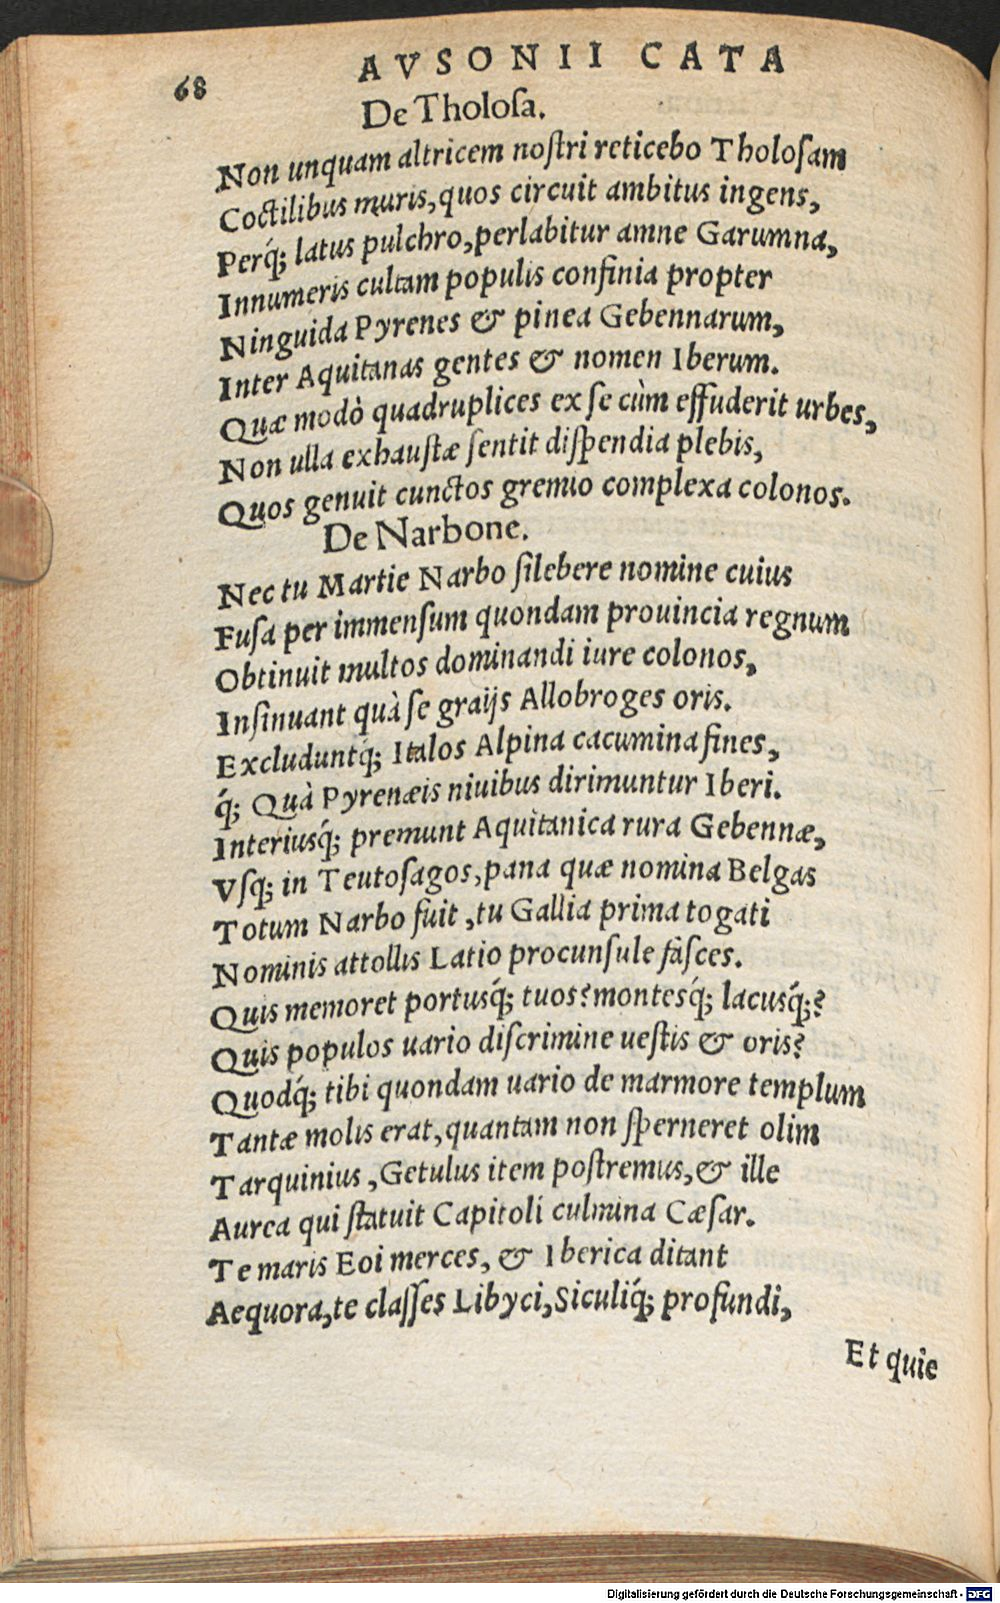 68
AVSONII CATA
De Tholoſa.
Non unquam altricem noſtri reticebo Tholoſam
Coctilibus muris, quos circuit ambitus ingens,
Perq́; latus pulchro, perlabitur amne Garumna,
Innumeris cultam populis confinia propter
Ninguida Pyrenes & pinea Gebennarum,
Inter Aquitanas gentes & nomen Iberum.
Quæ modò quadruplices ex ſe cùm effuderit urbes,
Non ulla exhauſtæ ſentit diſpendia plebis,
Quos genuit cunctos gremio complexa colonos.
De Narbone.
Nec tu Martie Narbo ſilebere nomine cuius
Fuſa per immenſum quondam prouincia regnum
Obtinuit multos dominandi iure colonos,
Inſinuant quà ſe graijs Allobroges oris.
Excluduntq́; Italos Alpina cacumina fines,
q́; Quà Pyrenæis niuibus dirimuntur Iberi.
Interiusq́; premunt Aquitanica rura Gebennæ,
Vſq; in Teutoſagos, pana quæ nomina Belgas
Totum Narbo fuit, tu Gallia prima togati
Nominis attollis Latio procunſule faſces.
Quis memoret portusq́; tuos? montesq́; lacusq́;?
Quis populos uario diſcrimine ueſtis & oris?
Quodq́; tibi quondam uario de marmore templum
Tantæ molis erat, quantam non ſperneret olim
Tarquinius, Getulus item poſtremus, & ille
Aurea qui ſtatuit Capitoli culmina Cæſar.
Te maris Eoi merces, & Iberica ditant
Aequora, te claſſes Libyci, Siculiq́; profundi,
Et quie
Digitalisierung gefördert durch die Deutsche Forschungsgemeinschaft - DFG